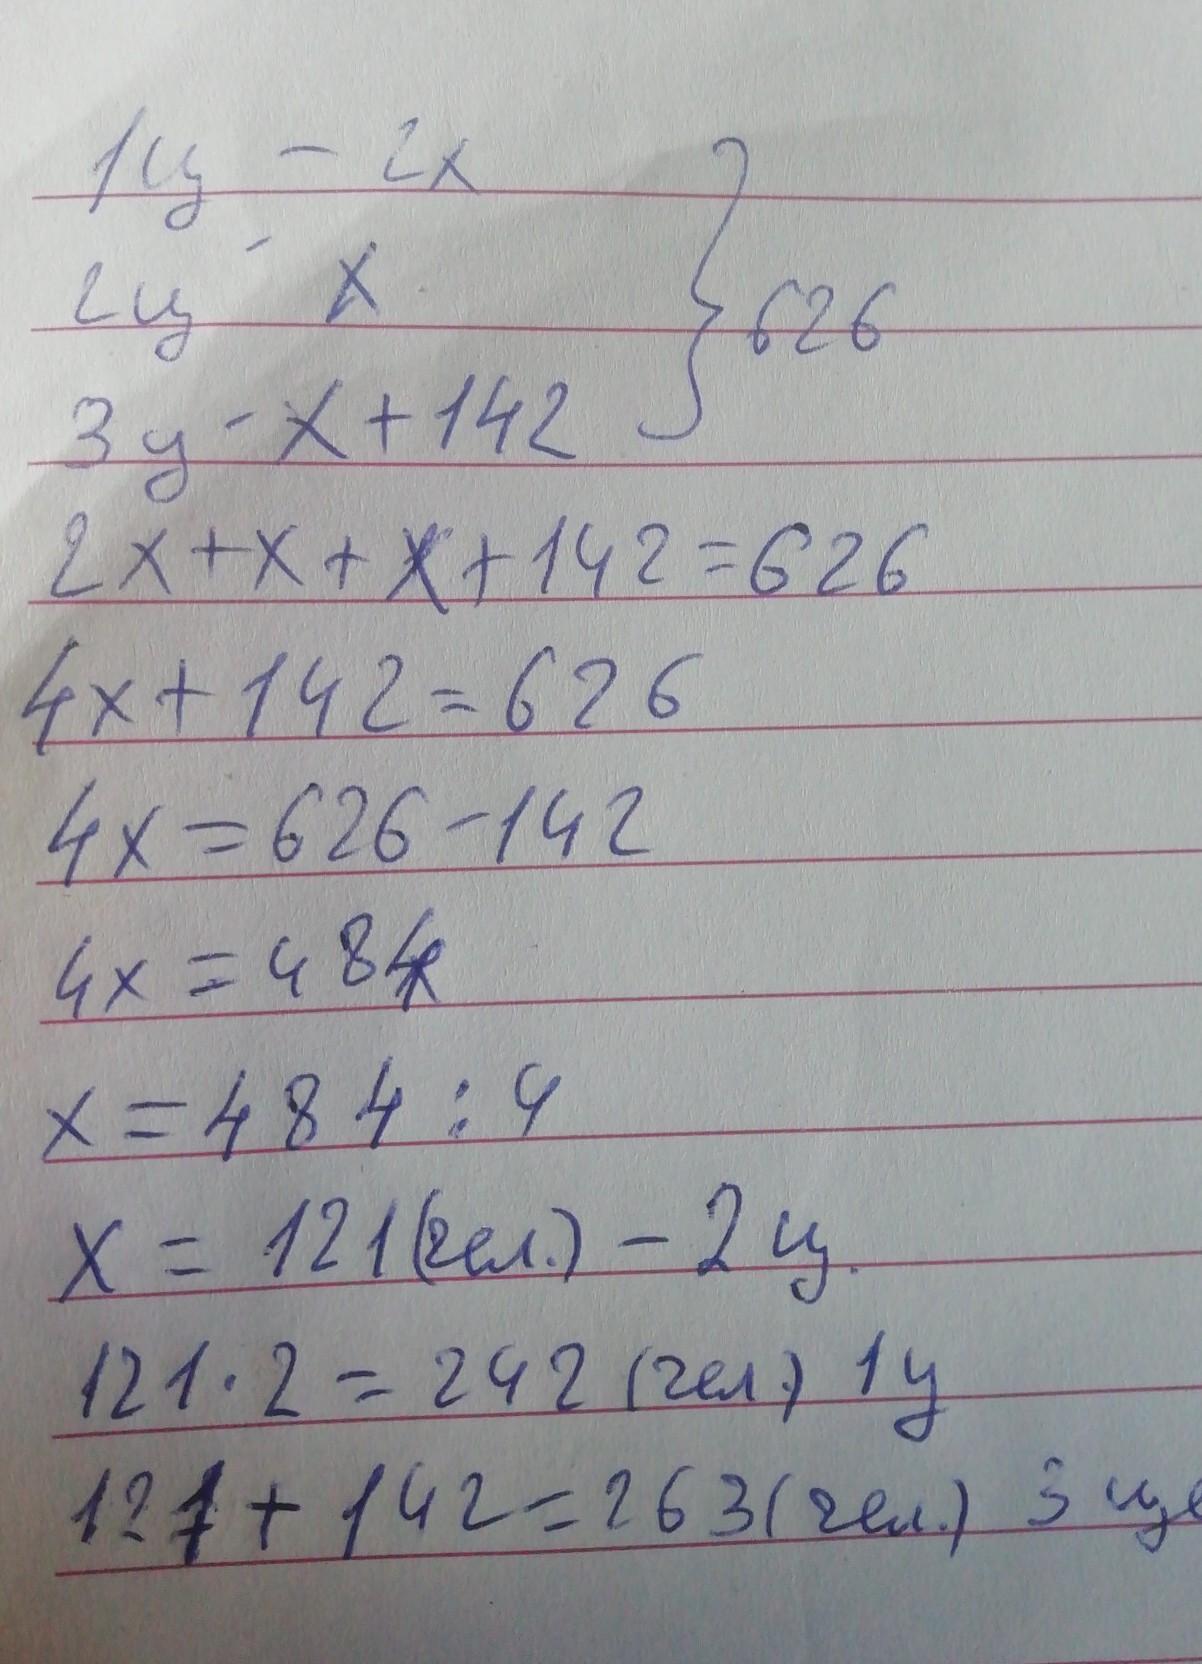 1ц - 2x
2ц - x
3ц - x + 142
} 626
2x + x + x + 142 = 626
4x + 142 = 626
4x = 626 - 142
4x = 484
x = 484 : 4
x = 121 (чел.) - 2 ц.
121 · 2 = 242 (чел.) 1ц
121 + 142 = 263 (чел.) 3 це